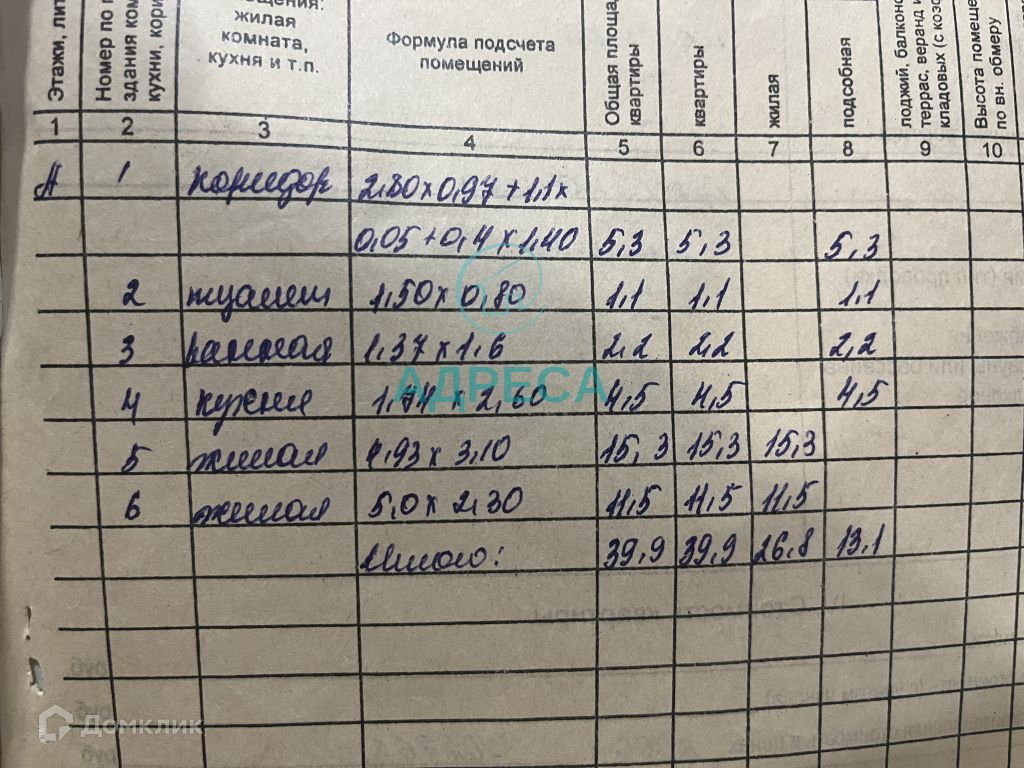 Этажи, лит
Номер по п
здания ком
кухни, кори
жилая
комната,
кухня и т.п.
Формула подсчета
помещений
Общая площа
квартиры
квартиры
жилая
подсобная
лоджий, балконо
террас, веранд и
кладовых (с коэф
Высота помеще
по вн. обмеру
1 2 3 4 5 6 7 8 9 10
А 1 коридор 2,80×0,97+1,1×
0,05+0,4×1,40 5,3 5,3 5,3
2 туалет 1,50×0,80 1,1 1,1 1,1
3 ванная 1,37×1,6 2,2 2,2 2,2
4 кухня 1,74×2,60 4,5 4,5 4,5
5 жилая 4,93×3,10 15,3 15,3 15,3
6 жилая 5,0×2,30 11,5 11,5 11,5
Итого: 39,9 39,9 26,8 13,1
АДРЕСА
Стоимость квартиры
руб
руб
руб
Домклик